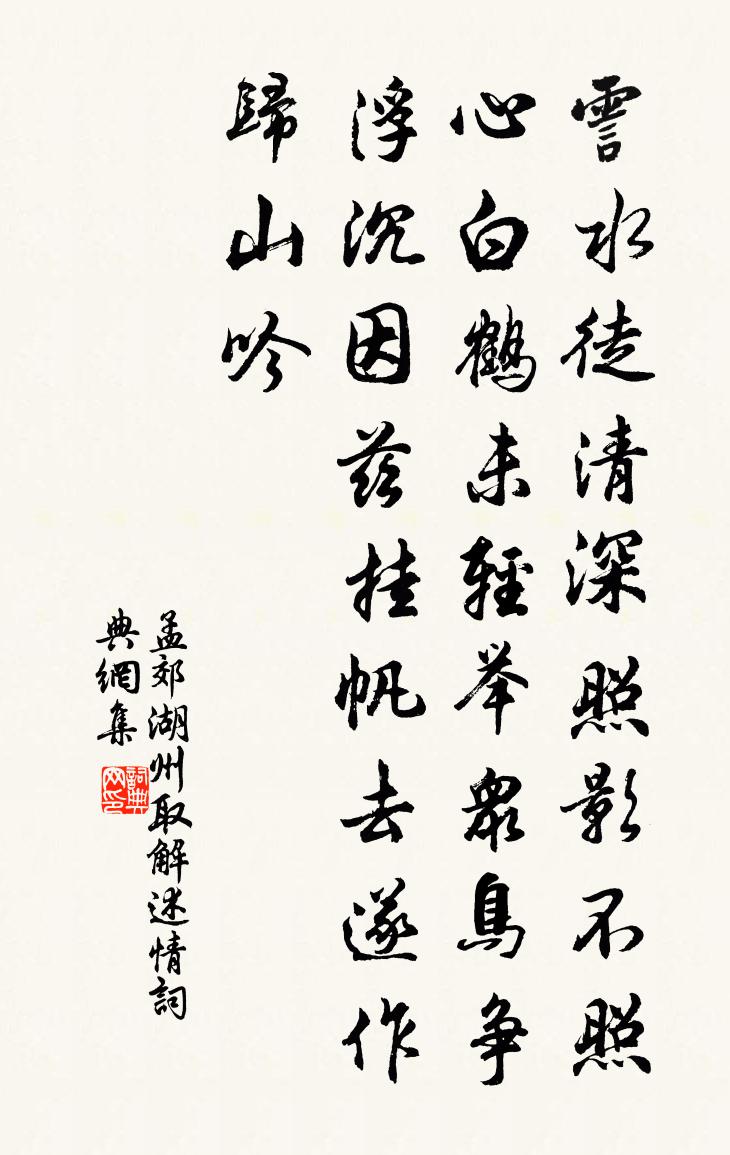 霅水徒清深照影不照
心白鶴未輕举衆鳥争
浮沉因茲挂帆去遂作
歸山吟
孟郊湖州取解述情詞
典網集
詞典
网印